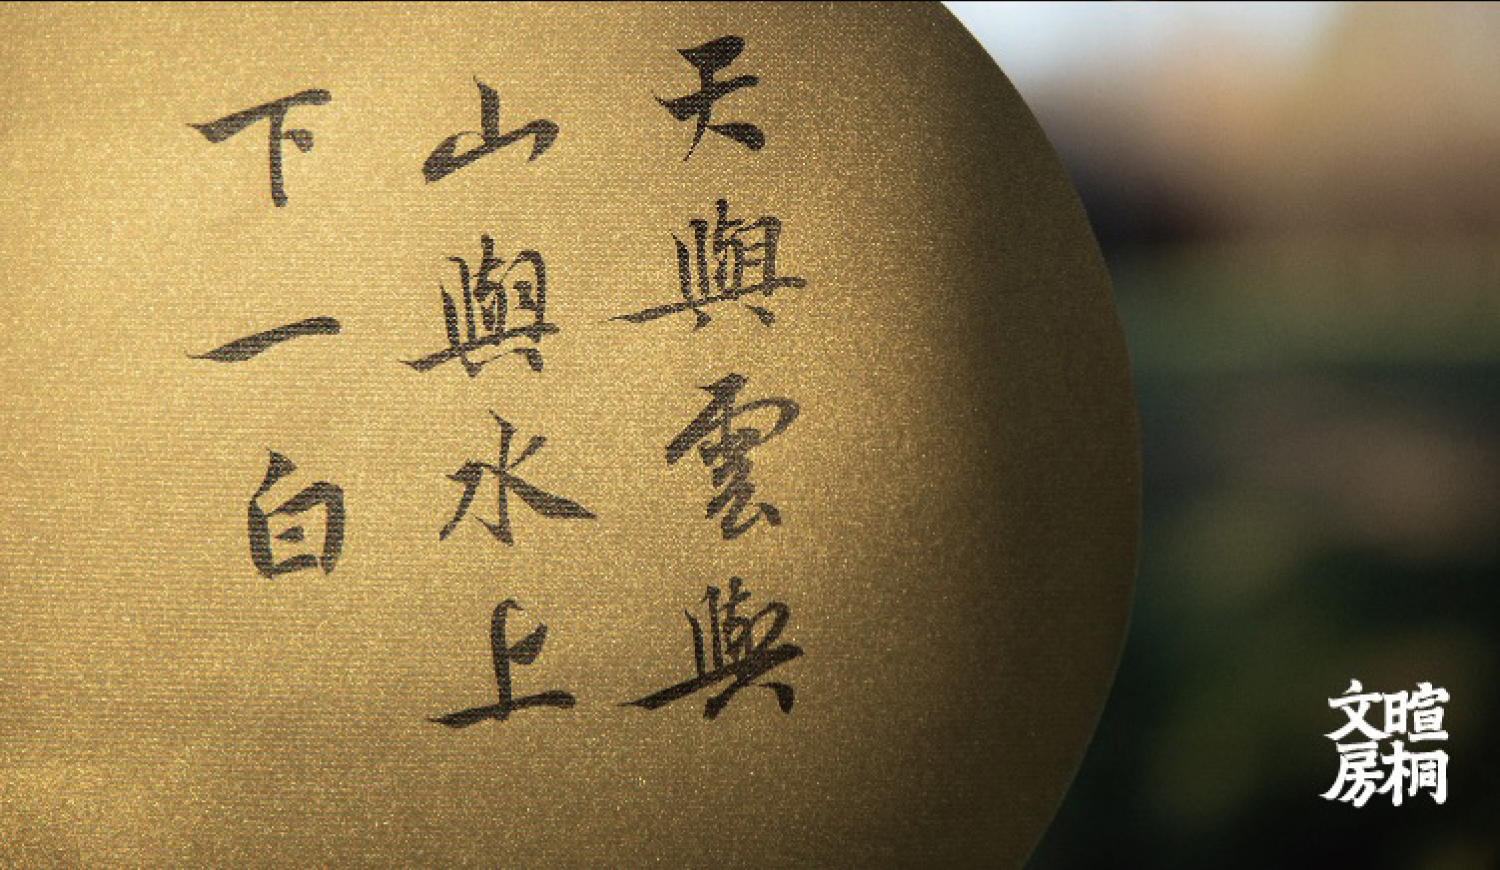 天與雲與
山與水上
下一白
暄桐
文房